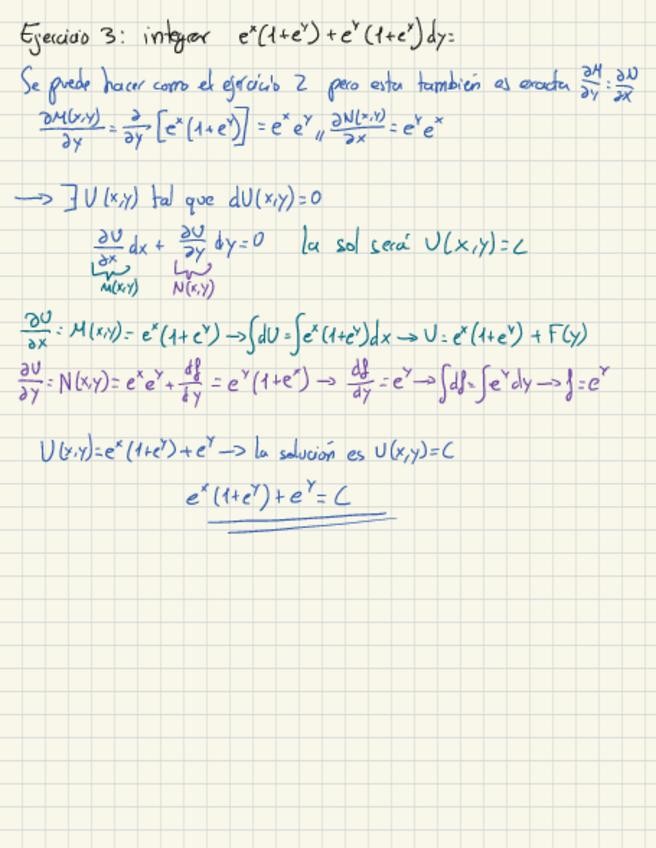 Ejercicio 3: integrar e^x(1+e^y)+e^y(1+e^x)dy=
Se puede hacer como el ejercicio 2 pero esta también es exacta ∂M/∂y = ∂N/∂x
∂M(x,y)/∂y = ∂/∂y [e^x(1+e^y)] = e^x e^y ,, ∂N(x,y)/∂x = e^y e^x
→ ∃ U(x,y) tal que dU(x,y)=0
∂U/∂x dx + ∂U/∂y dy=0 la sol será U(x,y)=C
M(x,y) N(x,y)
∂U/∂x = M(x,y)= e^x(1+e^y) → ∫dU=∫e^x(1+e^y)dx → U=e^x(1+e^y) + F(y)
∂U/∂y = N(x,y)= e^x e^y + df/dy = e^y(1+e^x) → df/dy = e^y → ∫df=∫e^y dy → f=e^y
U(x,y)=e^x(1+e^y)+e^y → la solución es U(x,y)=C
e^x(1+e^y)+e^y = C